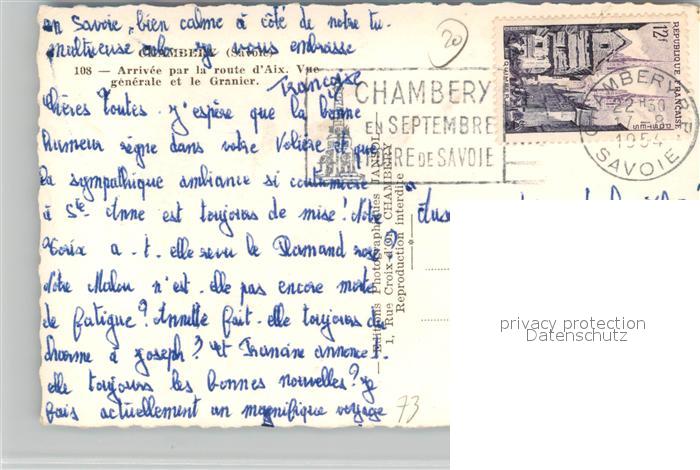 en Savoie, bien calme à côté de notre tu-
multueuse colo. Je vous embrasse
Françoise
CHAMBERY (SAVOIE)
108 — Arrivée par la route d'Aix. Vue
générale et le Granier.
Chères toutes. J'espère que la bonne
humeur règne dans votre Volière et que
la sympathique ambiance si coutumière
à Ste Anne est toujours de mise! Notre
a-t-elle revu le Flamand rose?
Notre Malou n'est-elle pas encore morte
de fatigue? Annette fait-elle toujours du
charme à Joseph? et Francine annonce-t-
elle toujours les bonnes nouvelles? Je
fais actuellement un magnifique voyage
20
73
— Editions Photographiques
1, Rue Croix-d'Or, CHAMBERY
Reproduction interdite
CHAMBERY
EN SEPTEMBRE
FOIRE DE SAVOIE
REPUBLIQUE FRANÇAISE
12f
POSTES
QUIMPER
CHAMBERY
22H30
17-8
1954
SAVOIE
privacy protection
Datenschutz